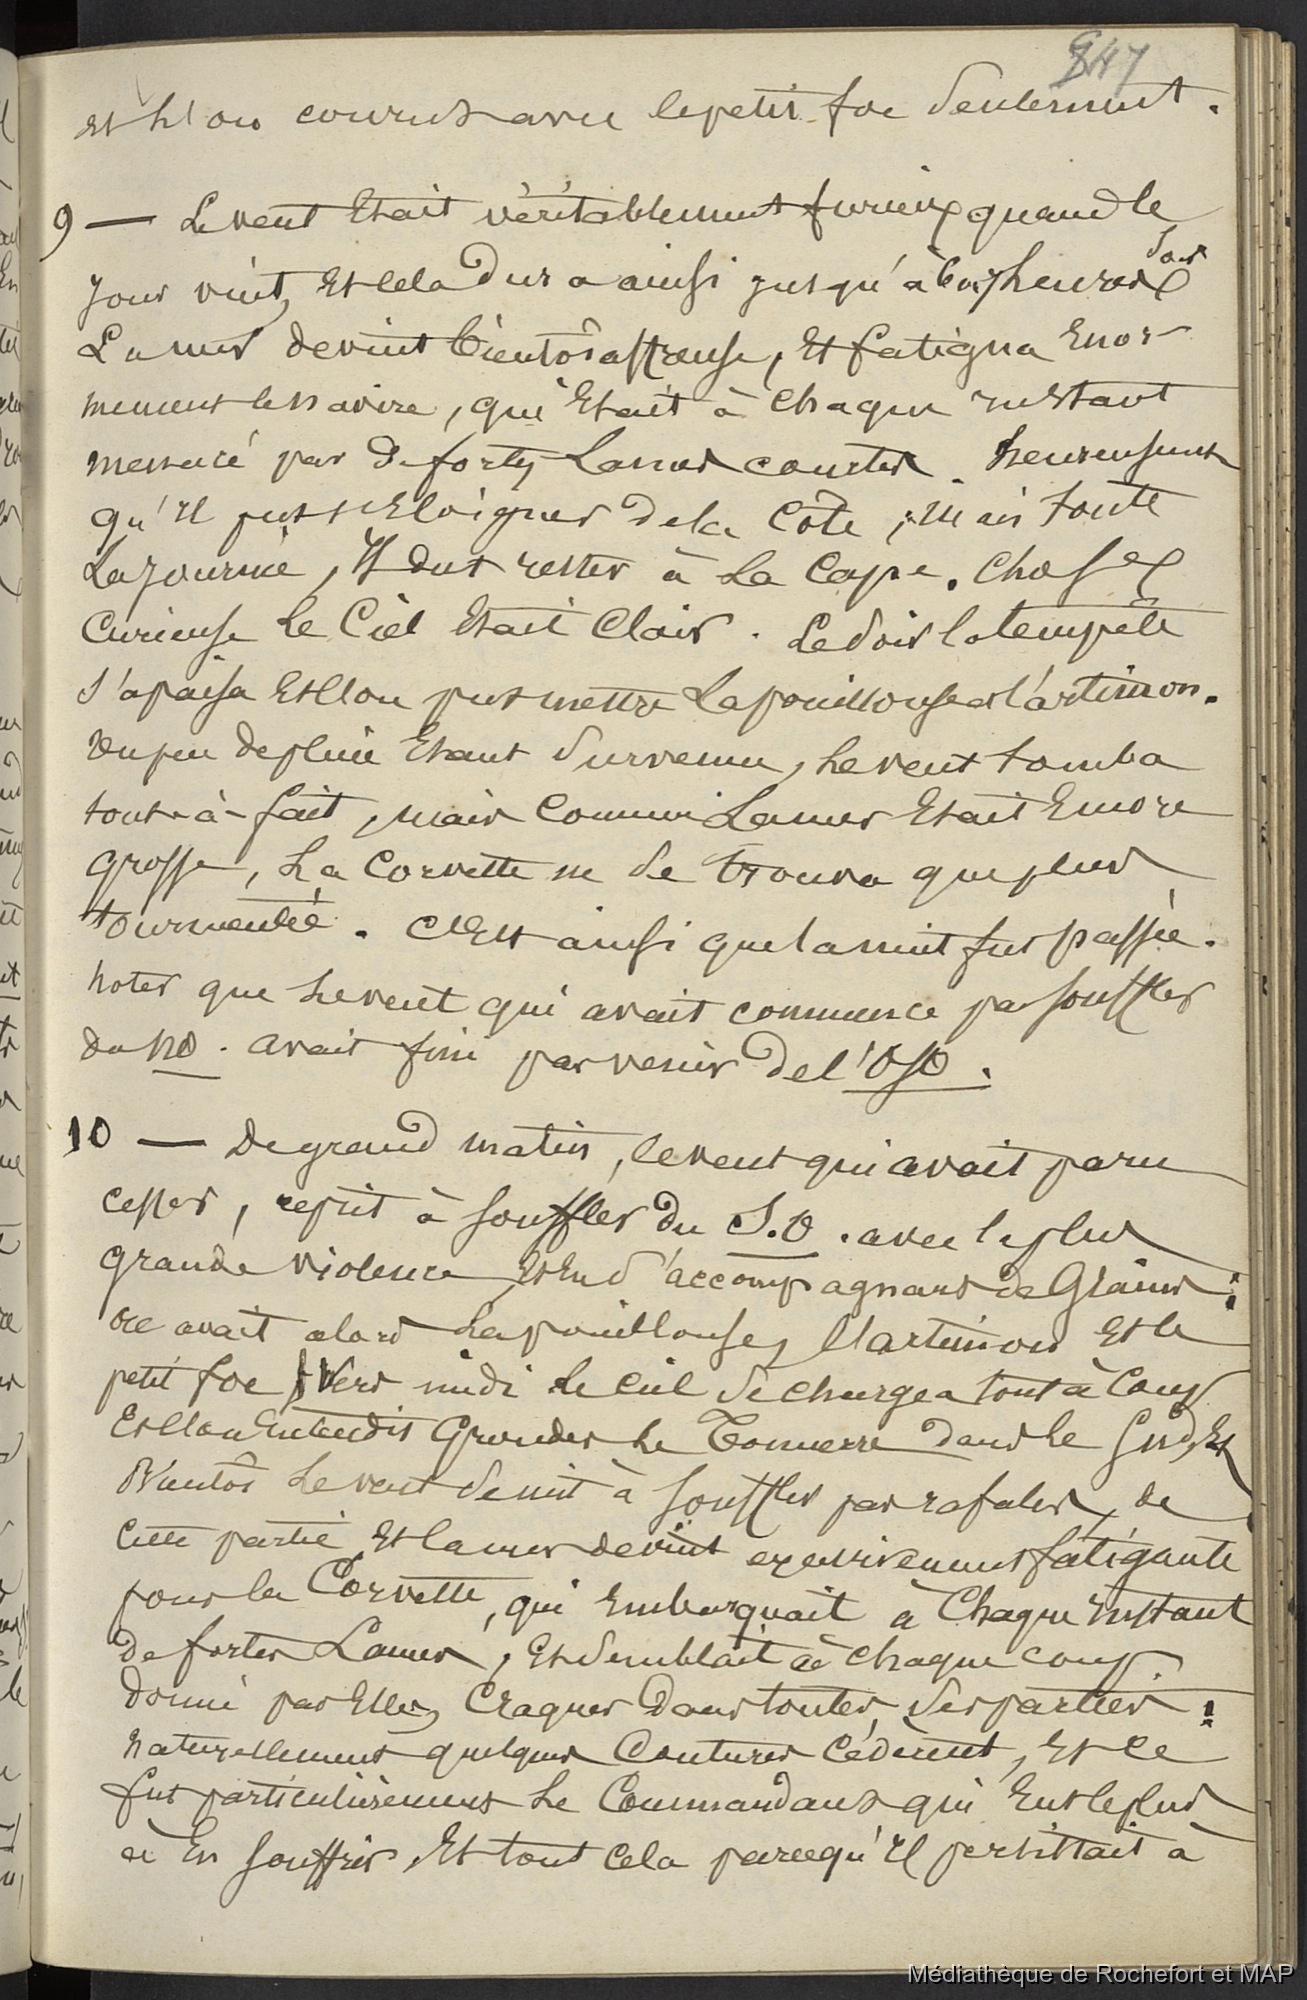 847
et l'on courut avec le petit foc seulement.
9 — Le vent était véritablement furieux quand le
jour vint, et cela dura ainsi jusqu'à 6 ou 7 heures du soir
La mer devint bientôt affreuse, et fatigua énor-
mement le navire, qui était à chaque instant
menacé par de fortes Lames courtes. heureusement
qu'il put s'éloigner de la Côte ; mais toute
La journée, Il dut rester à la Cape. Chose
Curieuse le Ciel était Clair. Le soir la tempête
s'apaisa et l'on put mettre La pouillouse et l'artimon.
un peu de pluie étant survenu, le vent tomba
tout-à-fait, mais comme La mer était Encore
grosse, La Corvette ne se trouva que plus
tourmentée. C'est ainsi que la nuit fut passée.
Noter que le vent qui avait commencé par souffler
du NO. avait fini par venir de l'OSO.
10 — De grand matin, le vent qui avait paru
cesser, reprit à souffler du S.O. avec la plus
grande violence, et en s'accompagnant de Grains :
on avait alors La pouillouse, l'artimon et le
petit foc. Vers midi le Ciel se chargea tout à Coup
et l'on entendit Gronder le Tonnerre dans le Sud, et
Bientôt Le vent se mit à souffler par rafales, de
cette partie, et la mer devint excessivement fatigante
pour la Corvette, qui embarquait à Chaque instant
de fortes Lames, et semblait à chaque coup
donné par Elles, Craquer dans toutes ses parties :
Naturellement quelques Coutures Cédèrent, et ce
fut particulièrement le Commandant qui Eut le plus
à en souffrir, et tout cela parcequ'il persistait à
Médiathèque de Rochefort et MAP